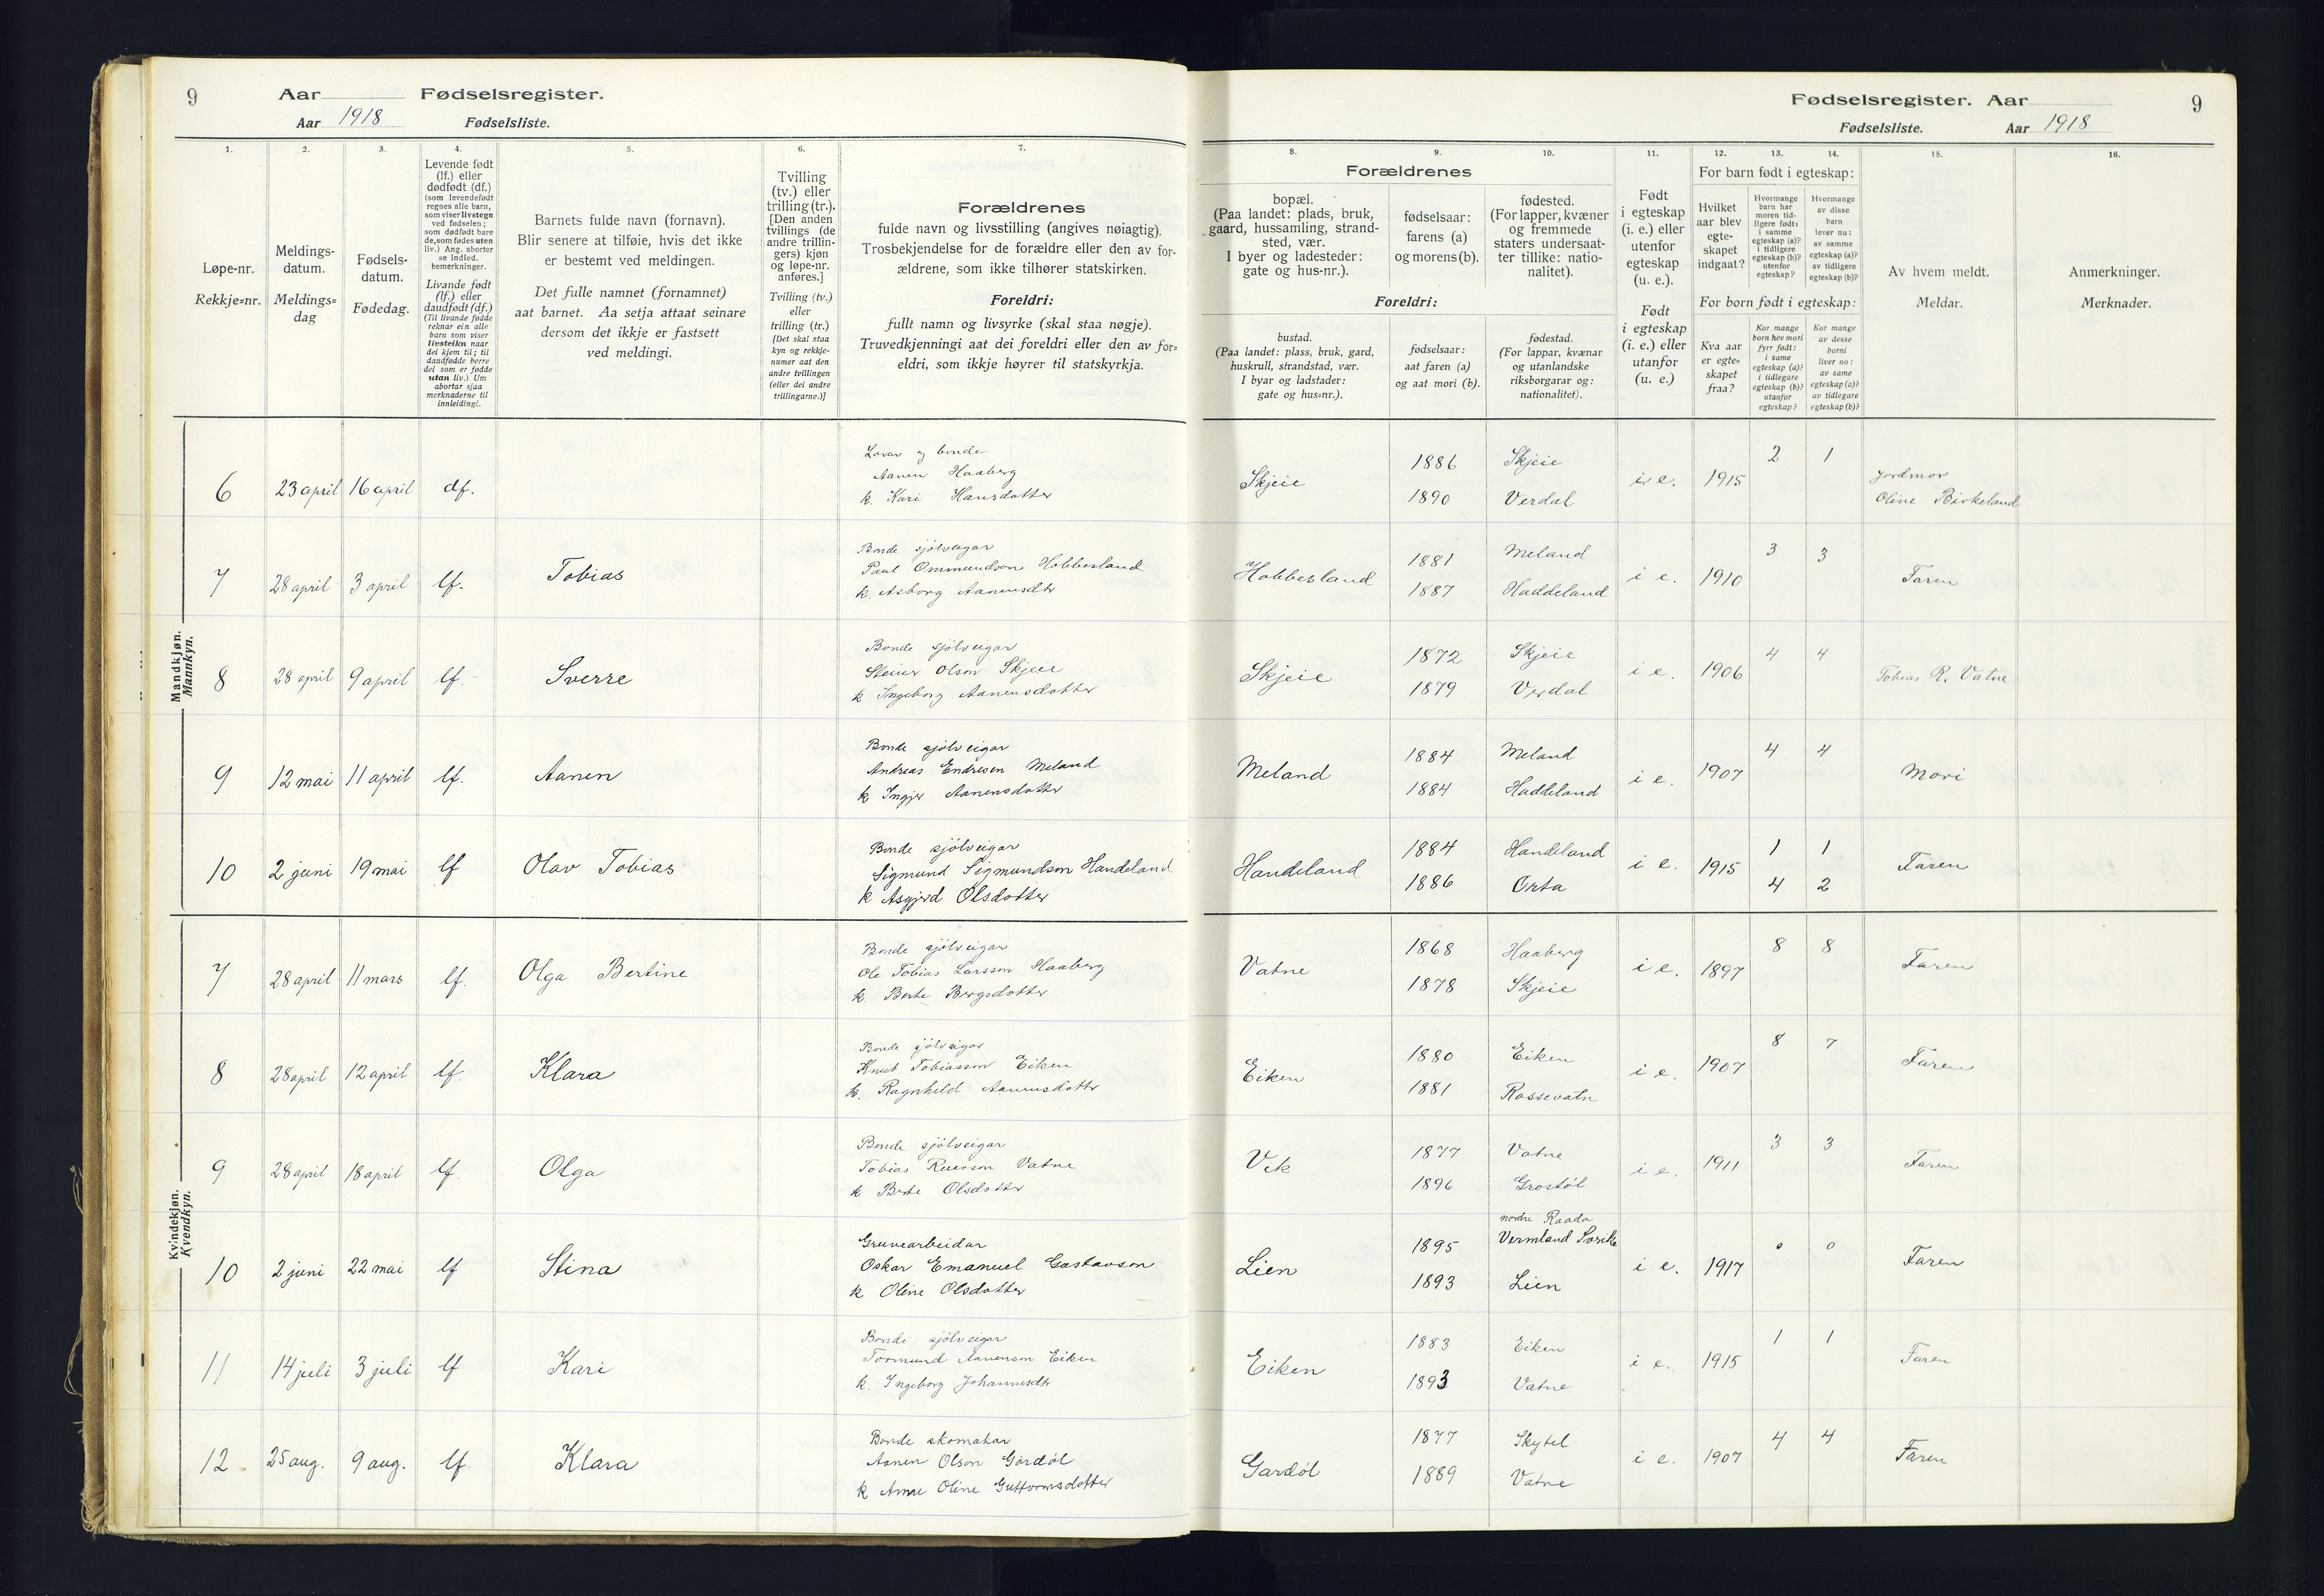 9
Aar
Fødselsregister.
Aar 1918
Fødselsliste.
1.
2.
3.
4.
5.
6.
7.
Løpe-nr.
Rekkje=nr.
Meldings-
datum.
Meldings=
dag
Fødsels-
datum.
Fødedag.
Levende født
(lf.) eller
dødfødt (df.)
(som levendefødt
regnes alle barn,
som viser livstegn
ved fødselen;
som dødfødt bare
de, som fødes uten
liv.) Ang. aborter
se indled.
bemerkninger.
Livande født
(lf.) eller
daudfødt (df.)
(Til livande fødde
reknar ein alle
barn som viser
livsteikn naar
dei kjem til; til
daudfødde berre
dei som er fødde
utan liv.) Um
abortar sjaa
merknaderne til
innleiding!.
Barnets fulde navn (fornavn).
Blir senere at tilføie, hvis det ikke
er bestemt ved meldingen.
Det fulle namnet (fornamnet)
aat barnet. Aa setja attaat seinare
dersom det ikkje er fastsett
ved meldingi.
Tvilling
(tv.) eller
trilling (tr.).
[Den anden
tvillings (de
andre trillin-
gers) kjøn
og løpe-nr.
anføres.]
Tvilling (tv.)
eller
trilling (tr.)
[Det skal staa
kyn og rekkje-
numer aat den
andre tvillingen
(eller dei andre
trillingarne.)]
Forældrenes
fulde navn og livsstilling (angives nøiagtig).
Trosbekjendelse for de forældre eller den av for-
ældrene, som ikke tilhører statskirken.
Foreldri:
fullt namn og livsyrke (skal staa nøgje).
Truvedkjenningi aat dei foreldri eller den av for=
eldri, som ikkje høyrer til statskyrkja.
Mandkjøn.
Mannkyn.
6 23 april 16 april df.
og bonde
Aanen Haaberg
k. Kari Hansdotter
7 28 april 3 april lf. Tobias
Bonde sjölveigar
Paul Ommundson Hobbesland
k. Asborg Aanensdtr
8 28 april 9 april lf. Sverre
Bonde sjölveigar
Steiner Olson Skjeie
k Ingeborg Aanensdotter
9 12 mai 11 april lf. Aanen
Bonde sjölveigar
Andreas Endresen Meland
k Ingjer Aanensdotter
10 2 juni 19 mai lf Olav Tobias
Bonde sjölveigar
Sigmund Sigmundson Handeland
k Asgjerd Olsdotter
Kvindekjøn.
Kvendkyn.
7 28 april 11 mars lf. Olga Bertine
Bonde sjölveigar
Ole Tobias Larsson Haaberg
k. Berte Bergsdotter
8 28 april 12 april lf. Klara
Bonde sjölveigar
Knut Tobiasson Eiken
k. Ragnhild Aanensdotter
9 28 april 18 april lf. Olga
Bonde sjölveigar
Tobias Reierson Vatne
k Berte Olsdotter
10 2 juni 22 mai lf Stina
Gruvearbeidar
Oskar Emanuel Gustavson
k Oline Olsdotter
11 14 juli 3 juli lf Kari
Bonde sjölveigar
Tormund Aanenson Eiken
k. Ingeborg Johannesdtr
12 25 aug. 9 aug. lf. Klara
Bonde skomakar
Aanen Olson Gardöl
k Anne Oline Guttormsdotter
Fødselsregister. Aar
9
Fødselsliste.
Aar 1918
8.
9.
10.
11.
12.
13.
14.
15.
16.
Forældrenes
bopæl.
(Paa landet: plads, bruk,
gaard, hussamling, strand-
sted, vær.
I byer og ladesteder:
gate og hus-nr.).
fødselsaar:
farens (a)
og morens (b).
fødested.
(For lapper, kvæner
og fremmede
staters undersaat-
ter tillike: natio-
nalitet).
Foreldri:
bustad.
(Paa landet: plass, bruk, gard,
huskrull, strandstad, vær.
I byar og ladstader:
gate og hus=nr.).
fødselsaar:
aat faren (a)
og aat mori (b).
fødestad.
(For lappar, kvænar
og utanlandske
riksborgarar og:
nationalitet).
Født
i egteskap
(i. e.) eller
utenfor
egteskap
(u. e.).
Født
i egteskap
(i. e.) eller
utanfor
(u. e.)
For barn født i egteskap:
Hvilket
aar blev
egte-
skapet
indgaat?
Hvormange
barn har
moren tid-
ligere født:
i samme
egteskap (a)?
i tidligere
egteskap (b)?
utenfor
egteskap?
Hvormange
av disse
barn
lever nu:
av samme
egteskap (a)?
av tidligere
egteskap (b)?
For born født i egteskap:
Kva aar
er egte=
skapet
fraa?
Kor mange
born hev mori
fyrr født:
i same
egteskap (a)?
i tidlegare
egteskap (b)?
utanfor
egteskap?
Kor mange
av desse
borni
liver no:
av same
egteskap (a)?
av tidlegare
egteskap (b)?
Av hvem meldt.
Meldar.
Anmerkninger.
Merknader.
Skjeie 1886 Skjeie i e. 1915 2 1 Jordmor
1890 Verdal Oline Birkeland
Hobbesland 1881 Meland i e. 1910 3 3 Faren
1887 Haddeland
Skjeie 1872 Skjeie i e. 1906 4 4 Tobias R. Vatne
1879 Verdal
Meland 1884 Meland i e. 1907 4 4 Mori
1884 Haddeland
Handeland 1884 Handeland i e. 1915 1 1 Faren
1886 Orta 4 2
Vatne 1868 Haaberg i e. 1897 8 8 Faren
1878 Skjeie
Eiken 1880 Eiken i e. 1907 8 7 Faren
1881 Rossevatn
Vik 1877 Vatne i e. 1911 3 3 Faren
1896 Grostöl
nordre Raada
Lien 1895 Vermland i e. 1917 0 0 Faren
1893 Lien
Eiken 1883 Eiken i e. 1915 1 1 Faren
1893 Vatne
Gardöl 1877 Skytel i e. 1907 4 4 Faren
1889 Vatne